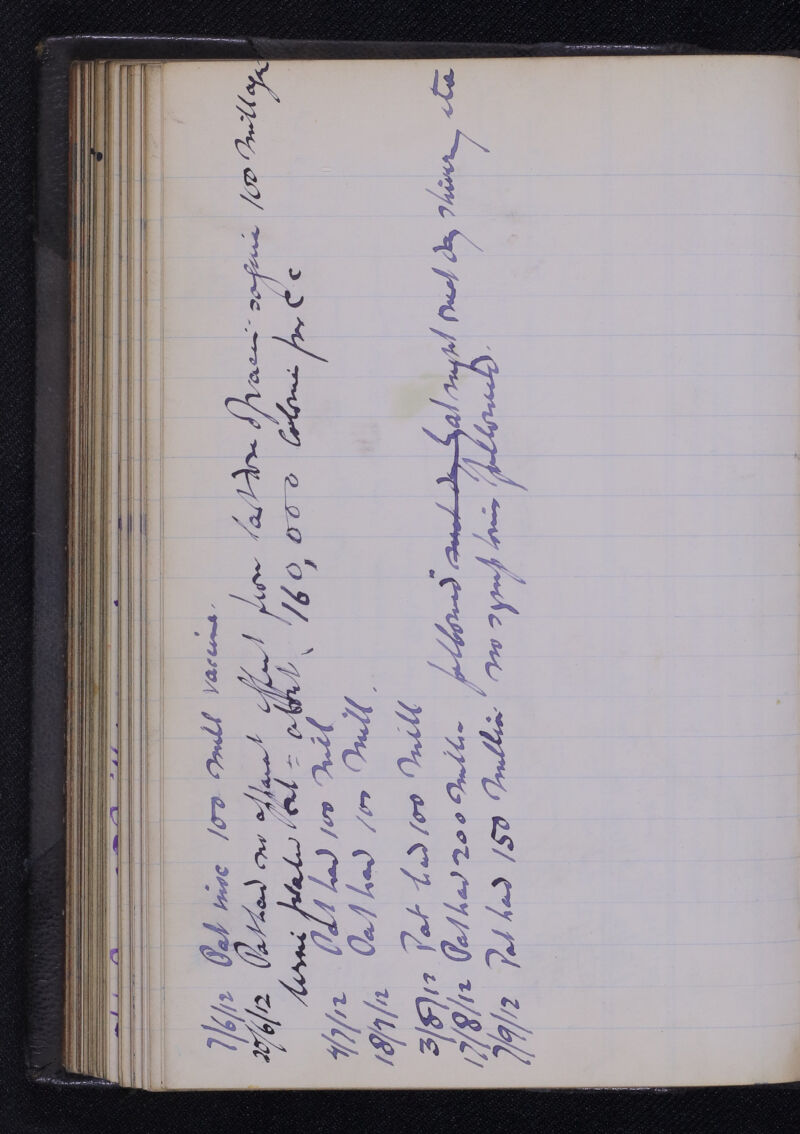 7/6/12 Pat inoc 100 mill vaccine.
20/6/12 Pat had no apparent effect from last dose of vacci- again 100 mill again
Urine plated out = about 160,000 colonies per CC
4/7/12 Pat had 100 mill
18/7/12 Pat had 100 mill.
3/8/12 Pat had 100 mill
17/8/12 Pat had 200 mills followed next day that night next day shivery etc
7/9/12 Pat had 150 million no symptoms followed.